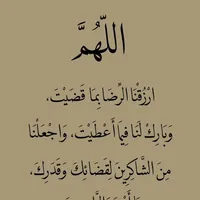 اللّهُمَّ
ارْزُقْنَا الرِّضَا بِمَا قَضَيْتَ،
وَبَارِكْ لَنَا فِيمَا أَعْطَيْتَ، وَاجْعَلْنَا
مِنَ الشَّاكِرِينَ لِقَضَائِكَ وَقَدَرِكَ،